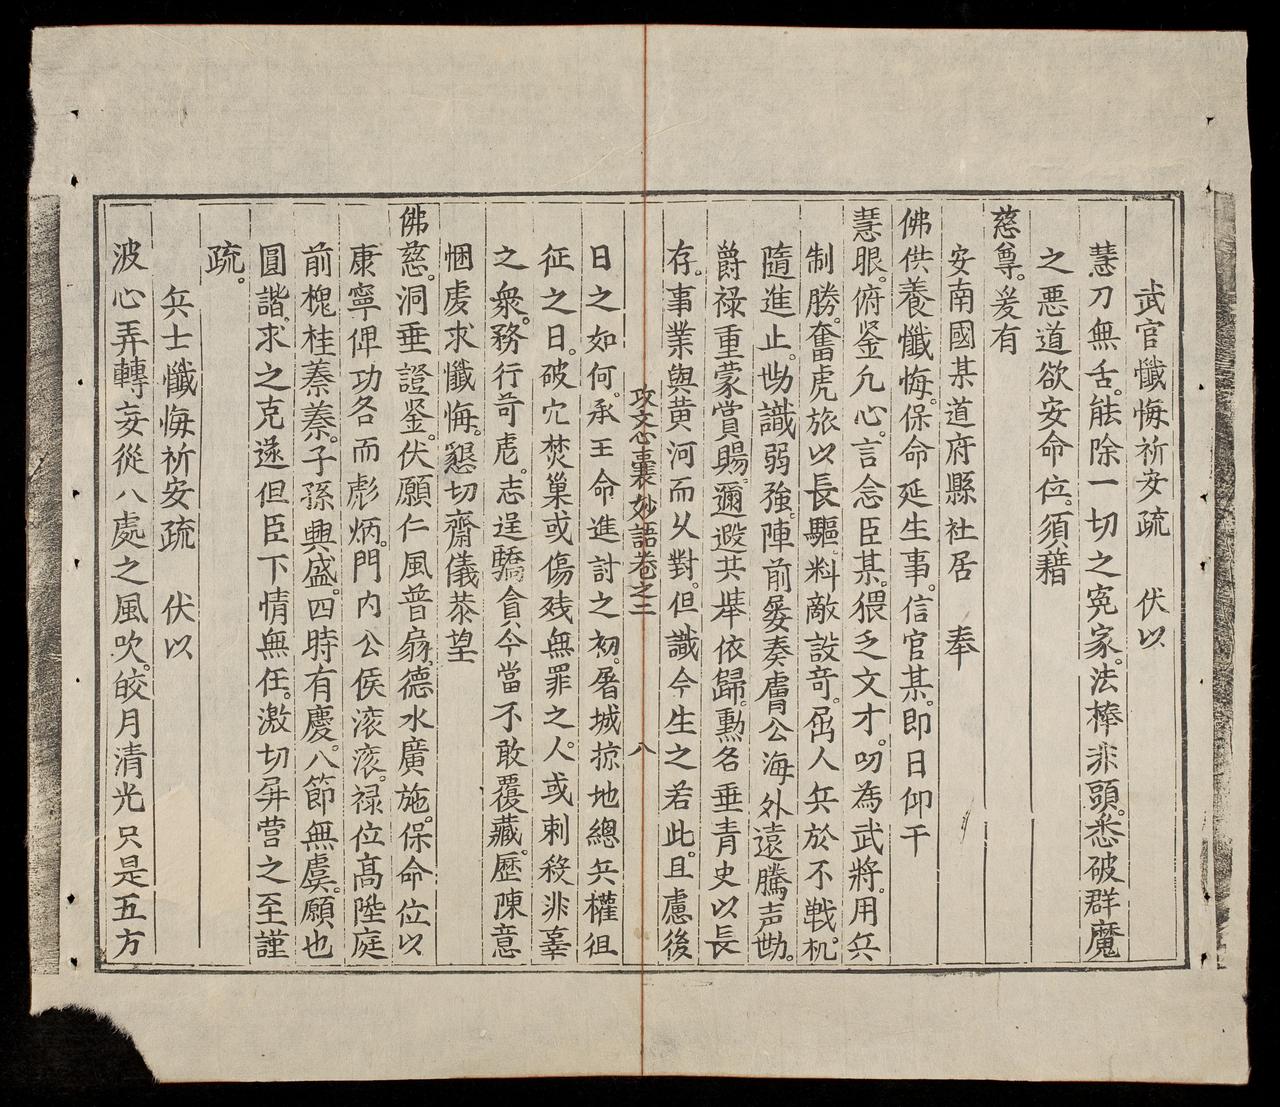 武官懺悔祈安疏　伏以
慧刀無舌。能除一切之冤家。法棒非頭。悉破群魔
之悪道欲安命位。須藉
慈尊。爰有
安南國某道府縣社居　奉
佛供養懺悔。保命延生事。信官某。即日仰干
慧眼。俯鉴凢心。言念臣某。猥乏文才。叨為武將。用兵
制勝。奮虎旅以長驅。料敵設竒。啚人兵於不戦。机
隨進止。势識弱強。陣前屡奏膚公海外遠騰声势。
爵禄重蒙賞賜。邇遐共举依歸。勲名垂青史以長
存。事業與黄河而乆對。但識今生之若此。且慮後
攻文心囊妙語卷之二　八
日之如何。承王命進討之初。屠城掠地總兵權徂
征之日。破穴焚巢或傷残無罪之人。或刺殺非辜
之衆。務行苛虐。志逞驕貪、今當不敢覆藏。歷陳意
悃虔求懺悔。懇切齋儀恭望
佛慈。洞垂證鉴。伏願仁風普扇。德水廣施。保命位以
康寧俾功名而彪炳。門内公侯滚滚。禄位髙陞庭
前槐桂蓁蓁。子孫興盛。四時有慶。八節無虞。願也
圓諧。求之克遂但臣下情無任。激切屏营之至謹
疏。
兵士懺悔祈安疏　伏以
波心弄轉妄從八處之風吹。皎月清光只是五方